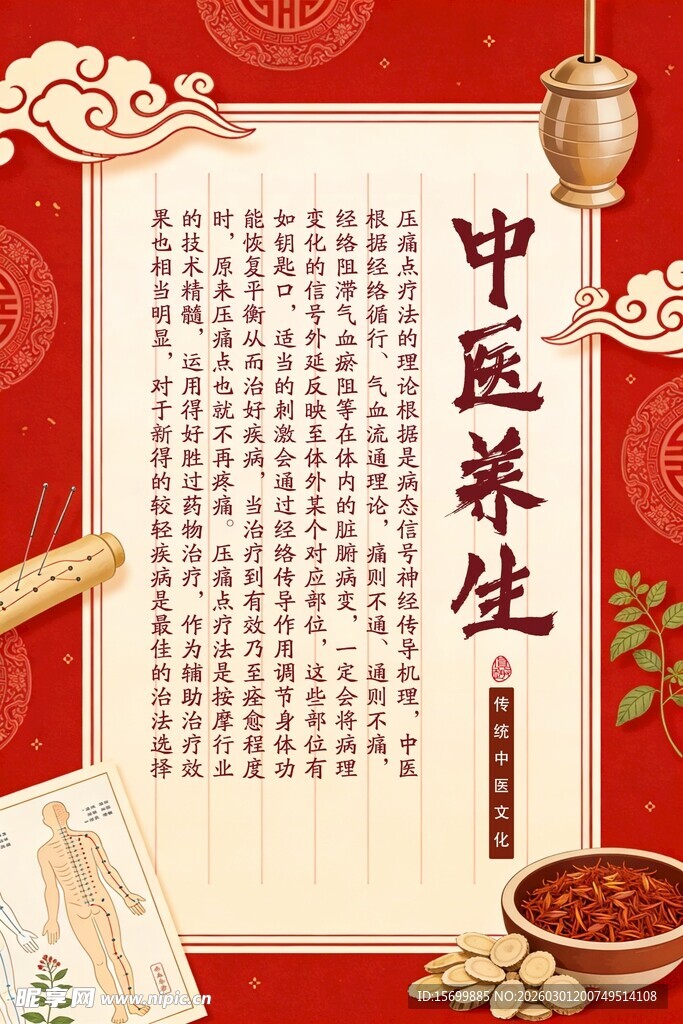 中医养生
传统中医文化
压痛点疗法的理论根据是病态信号神经传导机理，中医
根据经络循行、气血流通理论，痛则不通、通则不痛，
经络阻滞气血瘀阻等在体内的脏腑病变，一定会将病理
变化的信号外延反映至体外某个对应部位，这些部位有
如钥匙口，适当的刺激会通过经络传导作用调节身体功
能恢复平衡从而治好疾病，当治疗到有效乃至痊愈程度
时，原来压痛点也就不再疼痛。压痛点疗法是按摩行业
的技术精髓，运用得好胜过药物治疗，作为辅助治疗效
果也相当明显，对于新得的较轻疾病是最佳的治法选择
昵享网 www.nipic.cn
ID:15699885 NO:20260301200749514108